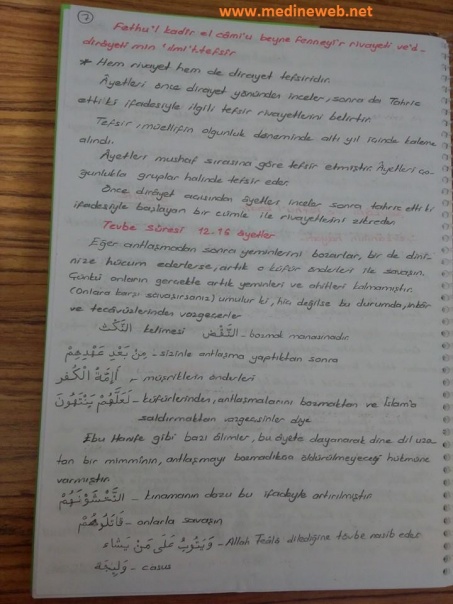 www.medineweb.net
7
Fethu'l kadîr el câmi'u beyne fenneyi'r rivayeti ve'd-
dirâyeti min 'ılmi'ttefsîr
* Hem rivayet hem de dirayet tefsiridir.
Âyetleri önce dirayet yönünden inceler, sonra da Tahric
etti ki ifadesiyle ilgili tefsir rivayetlerini belirtir.
Tefsir, müellifin olgunluk döneminde altı yıl içinde kaleme
alındı.
Âyetleri mushaf sırasına göre tefsir etmiştir. Âyetleri ço-
ğunlukla gruplar halinde tefsir eder.
Önce dirâyet açısından âyetleri inceler sonra tahric etti ki
ifadesiyle başlayan bir cümle ile rivayetlerini zikreder.
Tevbe sûresi 12-16 âyetler
Eğer antlaşmadan sonra yeminlerini bozarlar, bir de dini-
nize hücum ederlerse, artık o küfür önderleri ile savaşın.
Çünkü onların gerçekte artık yeminleri ve ahitleri kalmamıştır.
(Onlara karşı savaşırsanız) umulur ki, hiç değilse bu durumda, inkâr
ve tecavüzlerinden vazgeçerler
النَّكْثُ kelimesi النَّقْضُ - bozmak manasınadır
مِنْ بَعْدِ عَهْدِهِمْ - sizinle antlaşma yaptıktan sonra
أَئِمَّةَ الْكُفْرِ - müşriklerin önderleri
لَعَلَّهُمْ يَنْتَهُونَ - küfürlerinden, antlaşmalarını bozmaktan ve İslam'a
saldırmaktan vazgeçsinler diye
Ebu Hanife gibi bazı âlimler, bu âyete dayanarak dine dil uza-
tan bir zimmînin, antlaşmayı bozmadıkça öldürülmeyeceği hükmüne
varmıştır.
أَتَخْشَوْنَهُمْ - kınamanın dozu bu ifadeyle artırılmıştır
قَاتِلُوهُمْ - onlarla savaşın
وَيَتُوبُ عَلَى مَنْ يَشَاء - Allah Teâlâ dilediğine tövbe nasib eder
وَلِيجَةً - casus